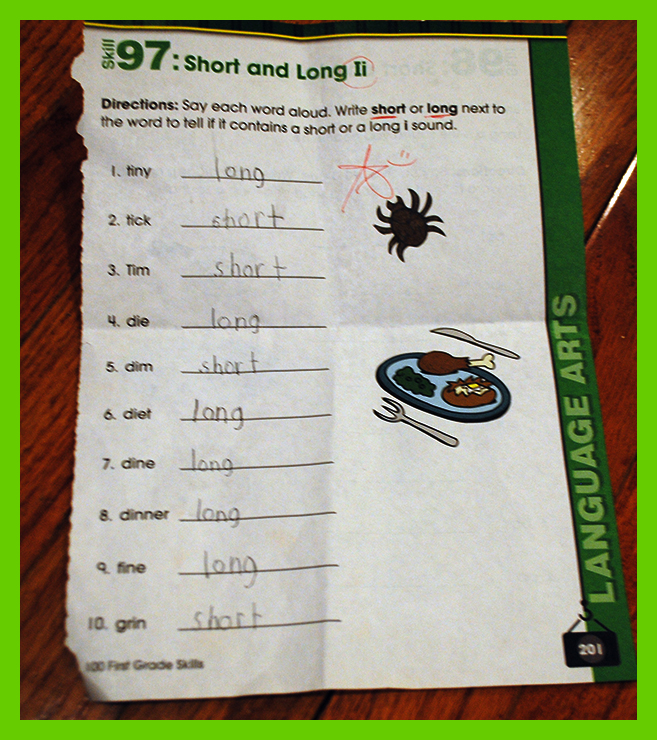 Skill 97: Short and Long Ii
Directions: Say each word aloud. Write short or long next to
the word to tell if it contains a short or a long i sound.
1. tiny long
2. tick short
3. Tim short
4. die long
5. dim short
6. diet long
7. dine long
8. dinner long
9. fine long
10. grin short
100 First Grade Skills
LANGUAGE ARTS
201